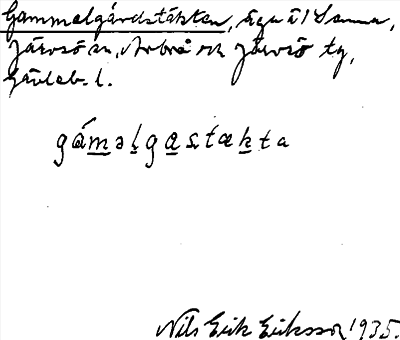 Gammelgårdstäkten, ägn å 1 Sanna,
Järvsö sn, Arbrå och Järvsö tg,
Gävleb. l.
gámalgastækta
Nils Erik Eriksson 1935.